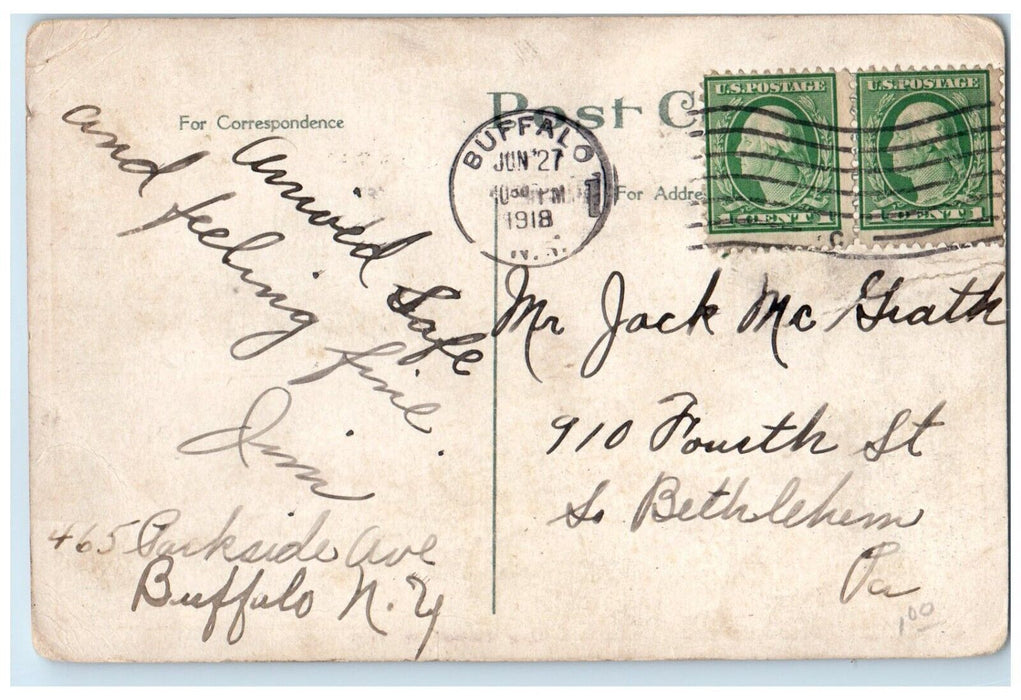 Post C
For Correspondence
For Addre
BUFFALO
JUN 27
PM
1918
N.Y.
1
U.S. POSTAGE
1 CENT 1
U.S. POSTAGE
1 CENT 1
Arrived Safe
and feeling fine.
Jim
465 Parkside Ave
Buffalo N.Y
Mr Jack McGrath
910 Fourth St
So Bethlehem
Pa
1 00